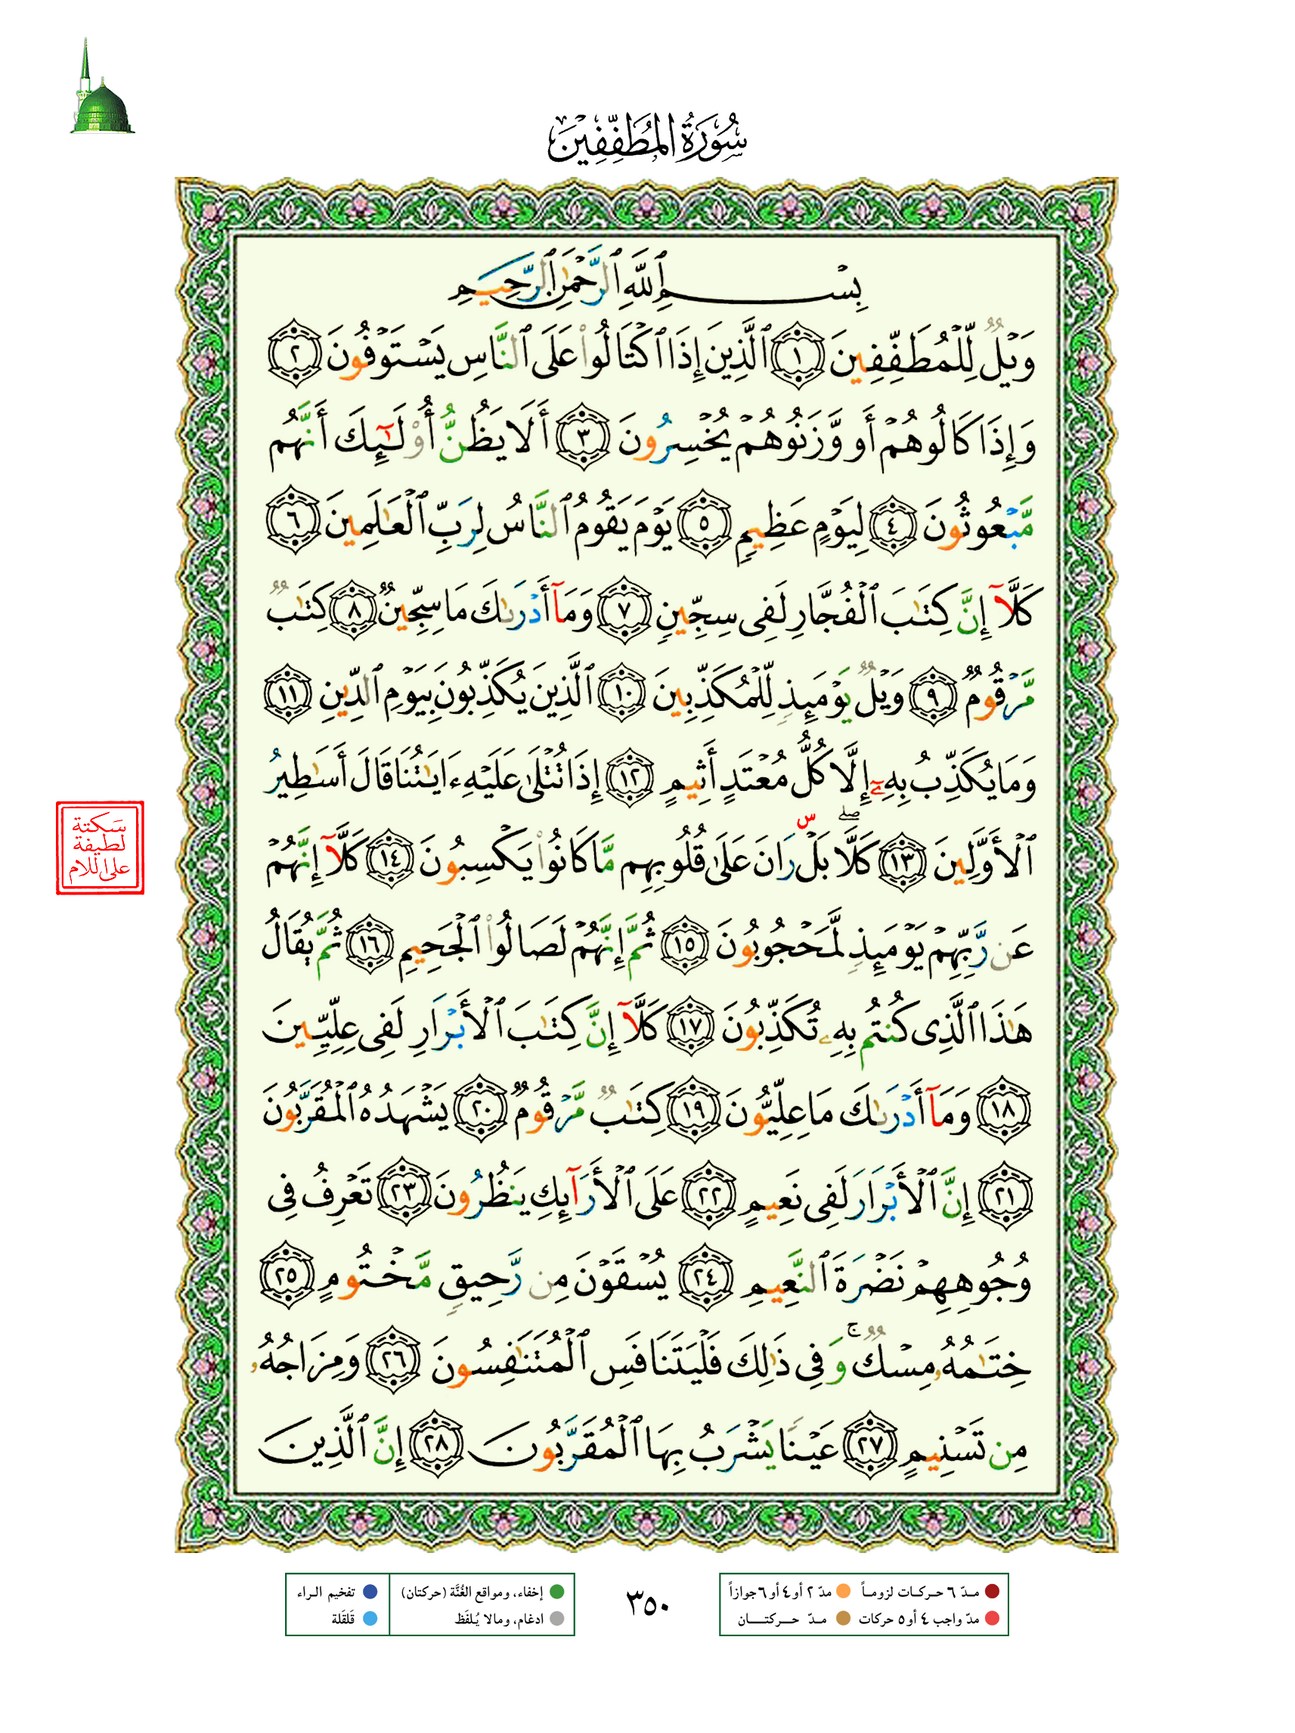 سُورَةُ المُطَفِّفِينَ
بِسْمِ ٱللَّهِ ٱلرَّحْمَٰنِ ٱلرَّحِيمِ
وَيْلٌ لِّلْمُطَفِّفِينَ ١ ٱلَّذِينَ إِذَا ٱكْتَالُوا۟ عَلَى ٱلنَّاسِ يَسْتَوْفُونَ ٢
وَإِذَا كَالُوهُمْ أَو وَّزَنُوهُمْ يُخْسِرُونَ ٣ أَلَا يَظُنُّ أُو۟لَٰٓئِكَ أَنَّهُم
مَّبْعُوثُونَ ٤ لِيَوْمٍ عَظِيمٍ ٥ يَوْمَ يَقُومُ ٱلنَّاسُ لِرَبِّ ٱلْعَٰلَمِينَ ٦
كَلَّآ إِنَّ كِتَٰبَ ٱلْفُجَّارِ لَفِى سِجِّينٍ ٧ وَمَآ أَدْرَىٰكَ مَا سِجِّينٌ ٨ كِتَٰبٌ
مَّرْقُومٌ ٩ وَيْلٌ يَوْمَئِذٍ لِّلْمُكَذِّبِينَ ١٠ ٱلَّذِينَ يُكَذِّبُونَ بِيَوْمِ ٱلدِّينِ ١١
وَمَا يُكَذِّبُ بِهِۦٓ إِلَّا كُلُّ مُعْتَدٍ أَثِيمٍ ١٢ إِذَا تُتْلَىٰ عَلَيْهِ ءَايَٰتُنَا قَالَ أَسَٰطِيرُ
ٱلْأَوَّلِينَ ١٣ كَلَّا ۖ بَلْ ۜ رَانَ عَلَىٰ قُلُوبِهِم مَّا كَانُوا۟ يَكْسِبُونَ ١٤ كَلَّآ إِنَّهُمْ
سَكتة
لطيفة
على اللام
عَن رَّبِّهِمْ يَوْمَئِذٍ لَّمَحْجُوبُونَ ١٥ ثُمَّ إِنَّهُمْ لَصَالُوا۟ ٱلْجَحِيمِ ١٦ ثُمَّ يُقَالُ
هَٰذَا ٱلَّذِى كُنتُم بِهِۦ تُكَذِّبُونَ ١٧ كَلَّآ إِنَّ كِتَٰبَ ٱلْأَبْرَارِ لَفِى عِلِّيِّينَ
١٨ وَمَآ أَدْرَىٰكَ مَا عِلِّيُّونَ ١٩ كِتَٰبٌ مَّرْقُومٌ ٢٠ يَشْهَدُهُ ٱلْمُقَرَّبُونَ
٢١ إِنَّ ٱلْأَبْرَارَ لَفِى نَعِيمٍ ٢٢ عَلَى ٱلْأَرَآئِكِ يَنظُرُونَ ٢٣ تَعْرِفُ فِى
وُجُوهِهِمْ نَضْرَةَ ٱلنَّعِيمِ ٢٤ يُسْقَوْنَ مِن رَّحِيقٍ مَّخْتُومٍ ٢٥
خِتَٰمُهُۥ مِسْكٌ ۚ وَفِى ذَٰلِكَ فَلْيَتَنَافَسِ ٱلْمُتَنَٰفِسُونَ ٢٦ وَمِزَاجُهُۥ
مِن تَسْنِيمٍ ٢٧ عَيْنًا يَشْرَبُ بِهَا ٱلْمُقَرَّبُونَ ٢٨ إِنَّ ٱلَّذِينَ
مـدّ ٦ حـركـات لزومـاً مدّ ٢ أو ٤ أو ٦ جوازاً
مدّ واجب ٤ أو ٥ حركات مـدّ حـــركتـــــان
٣٥٠
إخفاء، ومواقع الغُنَّة (حركتان) تفخيم الـراء
ادغام، ومالا يُـلفَظ قَلقَلة